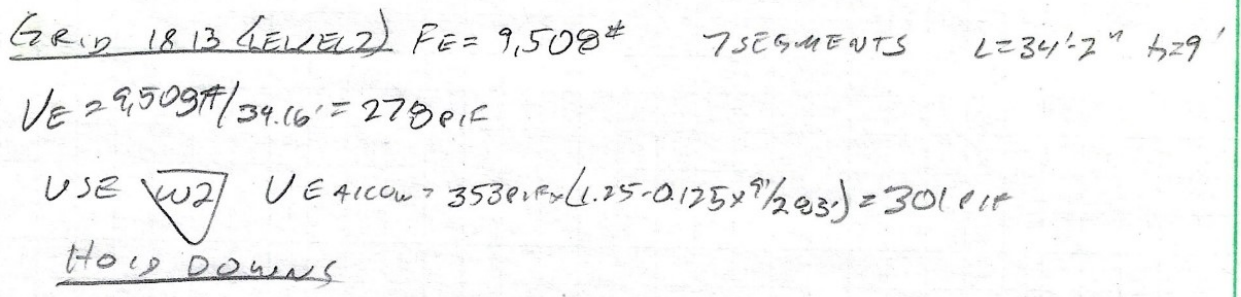 GRID 18 13 (LEVEL 2) FE = 9,508# 7 SEGMENTS L=34'-2" h=9'
VE = 9,509#/34.16' = 278 PLF
USE W2 VE ALLOW = 353 PLF x (1.25-0.125x9'/2.83') = 301 PLF
HOLD DOWNS